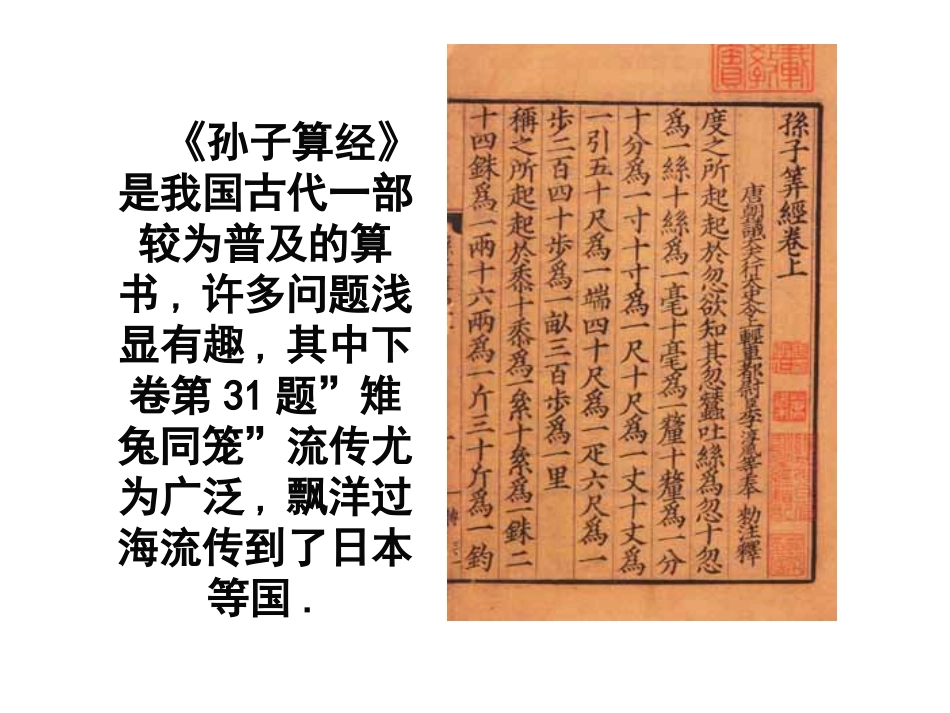 《孙子算经》
是我国古代一部
较为普及的算
书，许多问题浅
显有趣，其中下
卷第 31 题”雉
兔同笼”流传尤
为广泛，飘洋过
海流传到了日本
等国．
孫子筭經卷上
唐朝議大夫行太史令上輕車都尉臣李淳風等奉 勅注釋
度之所起起於忽欲知其忽蠶吐絲爲忽十忽
爲一絲十絲爲一毫十毫爲一釐十釐爲一分
十分爲一寸十寸爲一尺十尺爲一丈十丈爲
一引五十尺爲一端四十尺爲一疋六尺爲一
步二百四十步爲一畝三百步爲一里
稱之所起起於黍十黍爲一絫十絫爲一銖二
十四銖爲一兩十六兩爲一斤三十斤爲一鈞